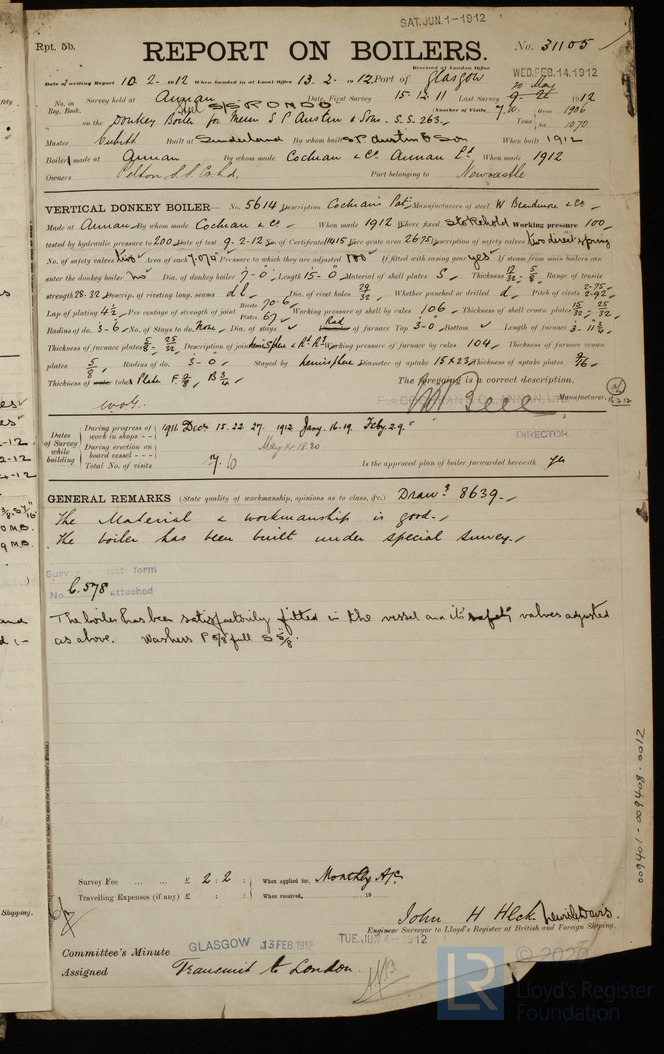 SAT. JUN. 1 - 1912
Rpt. 5b.
REPORT ON BOILERS.
No. 31105
Received at London Office
WED. FEB. 14. 1912
Date of writing Report 10-2-1912 When handed in at Local Office 13-2-1912. Port of Glasgow
No. in Survey held at Annan Date, First Survey 15-12-11 Last Survey 1912
Reg. Book. Number of Visits
on the Donkey Boiler for Messrs S P Austin & Sons. S.S. 263.
Tons Gross 1906
Net 1070
Master Cubitt Built at Sunderland By whom built S P Austin & Son When built 1912
Boiler made at Annan By whom made Cochran & Co Annan Ld. When made 1912
Owners Pelton S.S. Co. Ld. Port belonging to Newcastle
VERTICAL DONKEY BOILER— No. 5614 Description Cochran's Pat. Manufacturers of steel W Beardmore & Co
Made at Annan By whom made Cochran & Co. When made 1912 Where fixed Stokehold Working pressure 100
tested by hydraulic pressure to 200 Date of test 9-2-12 No. of Certificate 11415 Fire grate area 26.75 Description of safety valves two direct spring
No. of safety valves two Area of each 7.070 Pressure to which they are adjusted 100 If fitted with easing gear yes If steam from main boilers can
enter the donkey boiler no Dia. of donkey boiler 7-0 Length 15-0 Material of shell plates S Thickness 17/32 - 5/8 Range of tensile
strength 28-32 Descrip. of riveting long. seams d l Dia. of rivet holes 29/32 Whether punched or drilled d Pitch of rivets 2.75 - 2.92
Lap of plating 4 1/2 Per centage of strength of joint Rivets 70.6 Plates 67 Working pressure of shell by rules 106 Thickness of shell crown plates 15/32 25/32
Radius of do. 3-6 No. of Stays to do. None Dia. of stays Rad of furnace Top 3-0 Bottom Length of furnace 3-11 3/4
Thickness of furnace plates 5/8 25/32 Description of joint hemisphere & Working pressure of furnace by rules 104 Thickness of furnace crown
plates 5/8 Radius of do. 3-0 Stayed by hemisphere Diameter of uptake 15 x 23 Thickness of uptake plates 9/16
Thickness of water tubes Plate F 7/8 B 3/4
The foregoing is a correct description,
Manufacturer.
DIRECTOR.
Dates of Survey while building
During progress of work in shops - - 1911 Dec 15. 22. 27. 1912 Jany. 16. 19. Feby. 2. 9
During erection on board vessel - - - May 18. 20
Total No. of visits
Is the approved plan of boiler forwarded herewith yes
GENERAL REMARKS (State quality of workmanship, opinions as to class, &c.) Drawg 8639
The Material & workmanship is good.
The boiler has been built under special survey.
No. C. 578 attached
The boiler has been satisfactorily fitted in the vessel and its safety valves adjusted
as above. Washers P 5/8 full S 5/8.
Survey Fee ... ... £ 2 : 2 : When applied for, Monthly A/c.
Travelling Expenses (if any) £ : : When received, 19
John H Heck Lewis Davis.
Engineer Surveyor to Lloyd's Register of British and Foreign Shipping.
Committee's Minute GLASGOW 13 FEB 1912 TUE. JUN. 4 - 1912
Assigned Transmit to London
Shipping.
009401-009408-0012
© 2020
LR
Lloyd's Register
Foundation